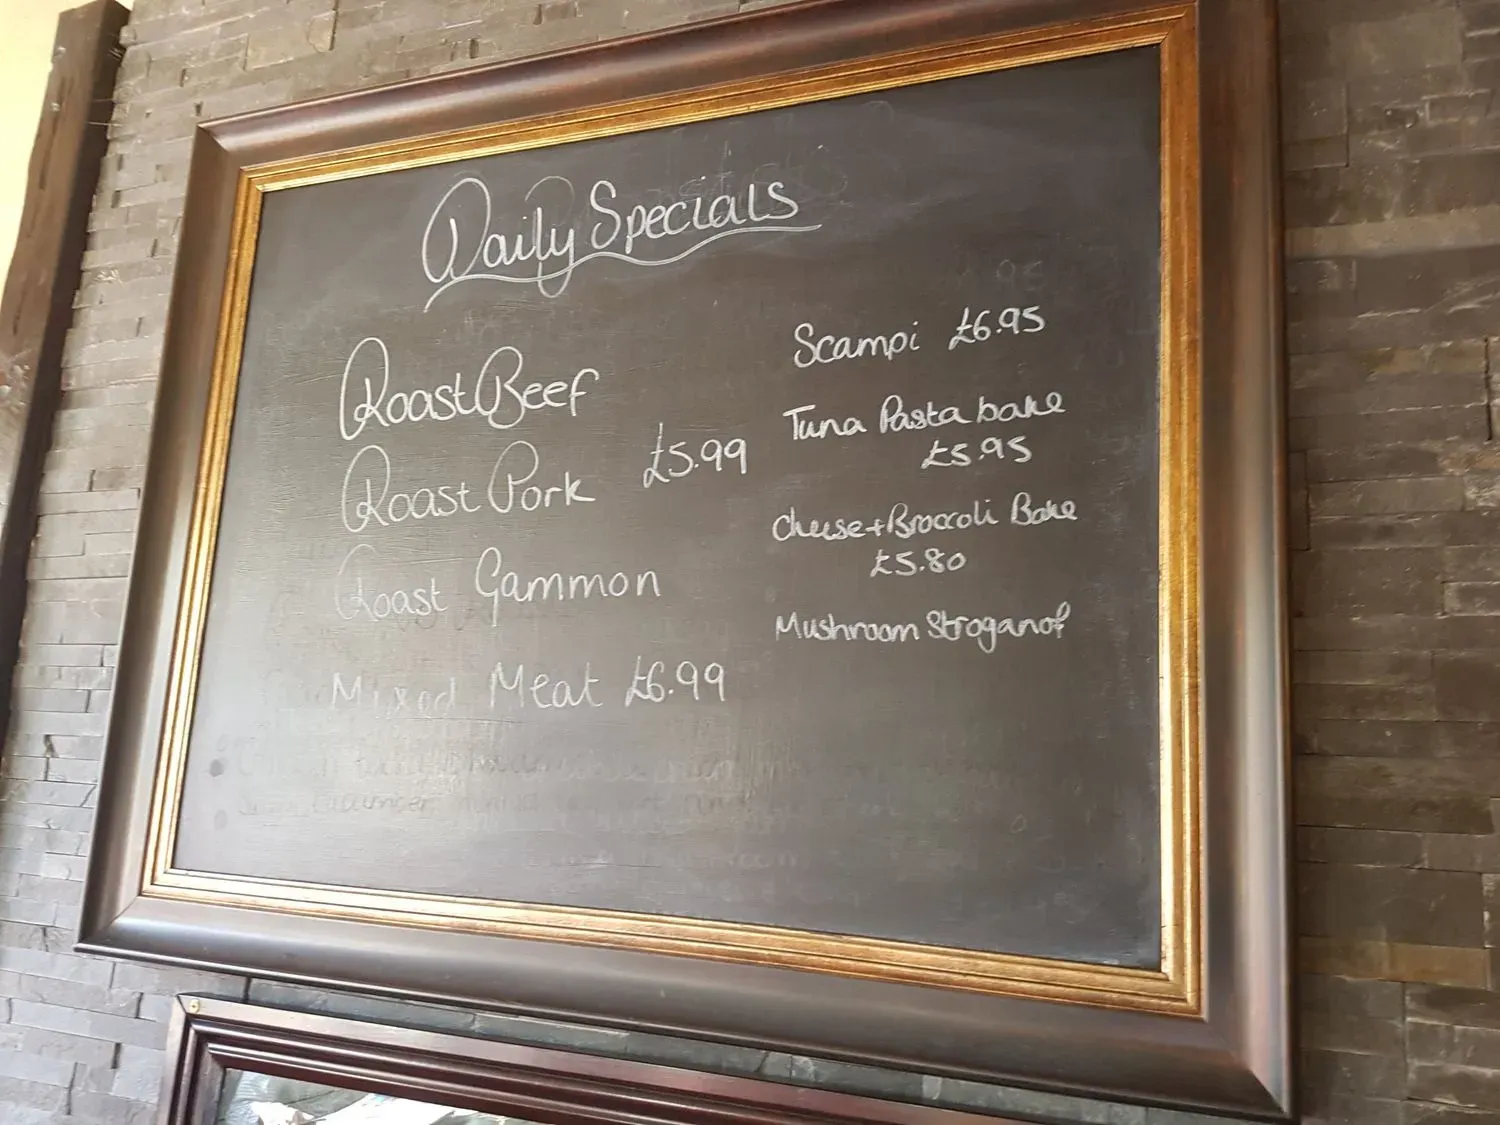 Daily Specials
Roast Beef
Roast Pork £5.99
Roast Gammon
Mixed Meat £6.99
Scampi £6.95
Tuna Pasta bake
£5.95
Cheese + Broccoli Bake
£5.80
Mushroom Stroganof